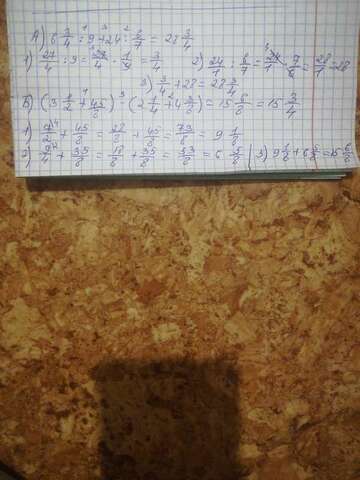 А) 6 3/4 : 9 + 24 : 6/7 = 28 3/4
1) 27/4 : 9 = 27/4 · 1/9 = 3/4 2) 24/1 : 6/7 = 24/1 · 7/6 = 28/1 = 28
3) 3/4 + 28 = 28 3/4
Б) (3 1/2 + 45/8) - (2 1/4 + 4 3/8) = 15 6/8 = 15 3/4
1) 7/2 + 45/8 = 28/8 + 45/8 = 73/8 = 9 1/8
2) 9/4 + 35/8 = 18/8 + 35/8 = 53/8 = 6 5/8 3) 9 1/8 + 6 5/8 = 15 6/8